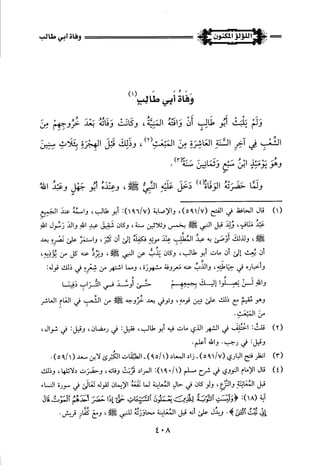 اللؤلؤ المكنون
وفاة أبي طالب
وَفَاةُ أَبِي طَالِبٍ (١)
وَلَمْ يَلْبَثْ أَبُو طَالِبٍ أَنْ وَافَتْهُ المَنِيَّةُ، وَكَانَتْ وَفَاتُهُ بَعْدَ خُرُوجِهِمْ مِنَ
الشِّعْبِ فِي آخِرِ السَّنَةِ العَاشِرَةِ مِنَ المَبْعَثِ(٢)، وَذَلِكَ قَبْلَ الهِجْرَةِ بِثَلَاثِ سِنِينَ
وَهُوَ يَوْمَئِذٍ ابْنُ سَبْعٍ وَثَمَانِينَ سَنَةً(٣).
وَلَمَّا حَضَرَتْهُ الوَفَاةُ(٤) دَخَلَ عَلَيْهِ النَّبِيُّ ﷺ، وَعِنْدَهُ أَبُو جَهْلٍ وَعَبْدُ اللهِ
(١) قال الحافظ في الفتح (٥٩١/٧)، والإصابة (١٩٦/٧): أبو طالب، واسمُهُ عند الجميع
عَبْدُ مَنَافٍ، وُلِدَ قبل النبي ﷺ بخمس وثلاثين سنة، وكان شَقِيقَ عبدِ اللهِ والدِ رَسُولِ اللهِ
ﷺ، ولذلك أَوْصَى به عبدُ المُطَّلِبِ عِنْدَ موتِهِ فَكَفَلَهُ إلى أن كَبُرَ، واستمَرَّ على نَصْرِهِ بعد
أن بُعِثَ إلى أن مَاتَ أبو طالب، وكان يَذُبُّ عن النبي ﷺ، ويَرُدُّ عنه كل من يُؤْذِيهِ،
وأخبارُه في حِيَاطَتِهِ، والذَّبِّ عنه معروفة مشهورَة، ومما اشتهر من شِعْرِهِ في ذلك قوله:
واللهِ لَــنْ يَصِــلُوا إليــكَ بِجَمْعِهِــمْ حتَّــى أُوَسَّــدَ فــي التُّــرابِ دَفِينــا
وهو مُقِيمٌ مع ذلك على دِينِ قومِهِ، وتوفي بعد خُرُوجِهِ من الشِّعبِ في العَامِ العاشرِ
من المَبْعَثِ.
(٢) قلتُ: اخْتُلِفَ في الشهر الذي مات فيه أبو طالب، فقيل: في رمضان، وقيل: في شوال،
وقيل: في رجب. والله أعلم.
(٣) انظر فتح الباري (٥٩١/٧). زاد المعاد (٩٥/١). الطبَّقَات الكُبْرى لابن سعد (٥٩/١).
(٤) قال الإمام النووي في شرح مسلم (١٩٠/١): المراد قَرُبَتْ وفاته، وحضَرَت دلائلها، وذلك
قبل المُعَايَنَةِ والنَّزْعِ، ولو كان في حال المُعَايَنَةِ لما نَفَعَهُ الإيمان لقوله تَعَالَى في سورة النساء
آية (١٨): ﴿وَلَيْسَتِ التَّوْبَةُ لِلَّذِينَ يَعْمَلُونَ السَّيِّئَاتِ حَتَّى إِذَا حَضَرَ أَحَدَهُمُ الْمَوْتُ قَالَ
إِنِّي تُبْتُ الْآنَ﴾. ويدل على أنه قبل المُعَايَنَةِ محاوَرَتُهُ للنبي ﷺ، ومع كُفَّارِ قريش.
٤٠٨